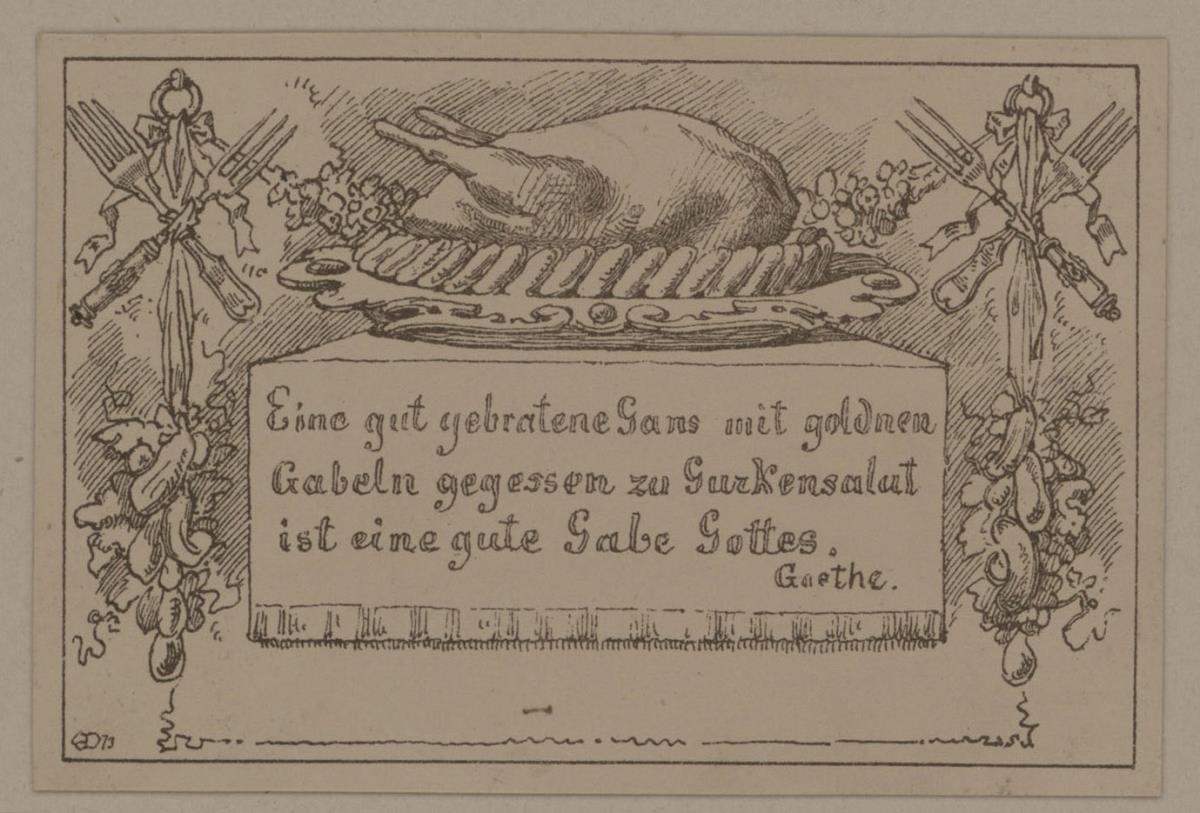 Eine gut gebratene Gans mit goldnen
Gabeln gegessen zu Gurkensalat
ist eine gute Gabe Gottes.
Goethe.